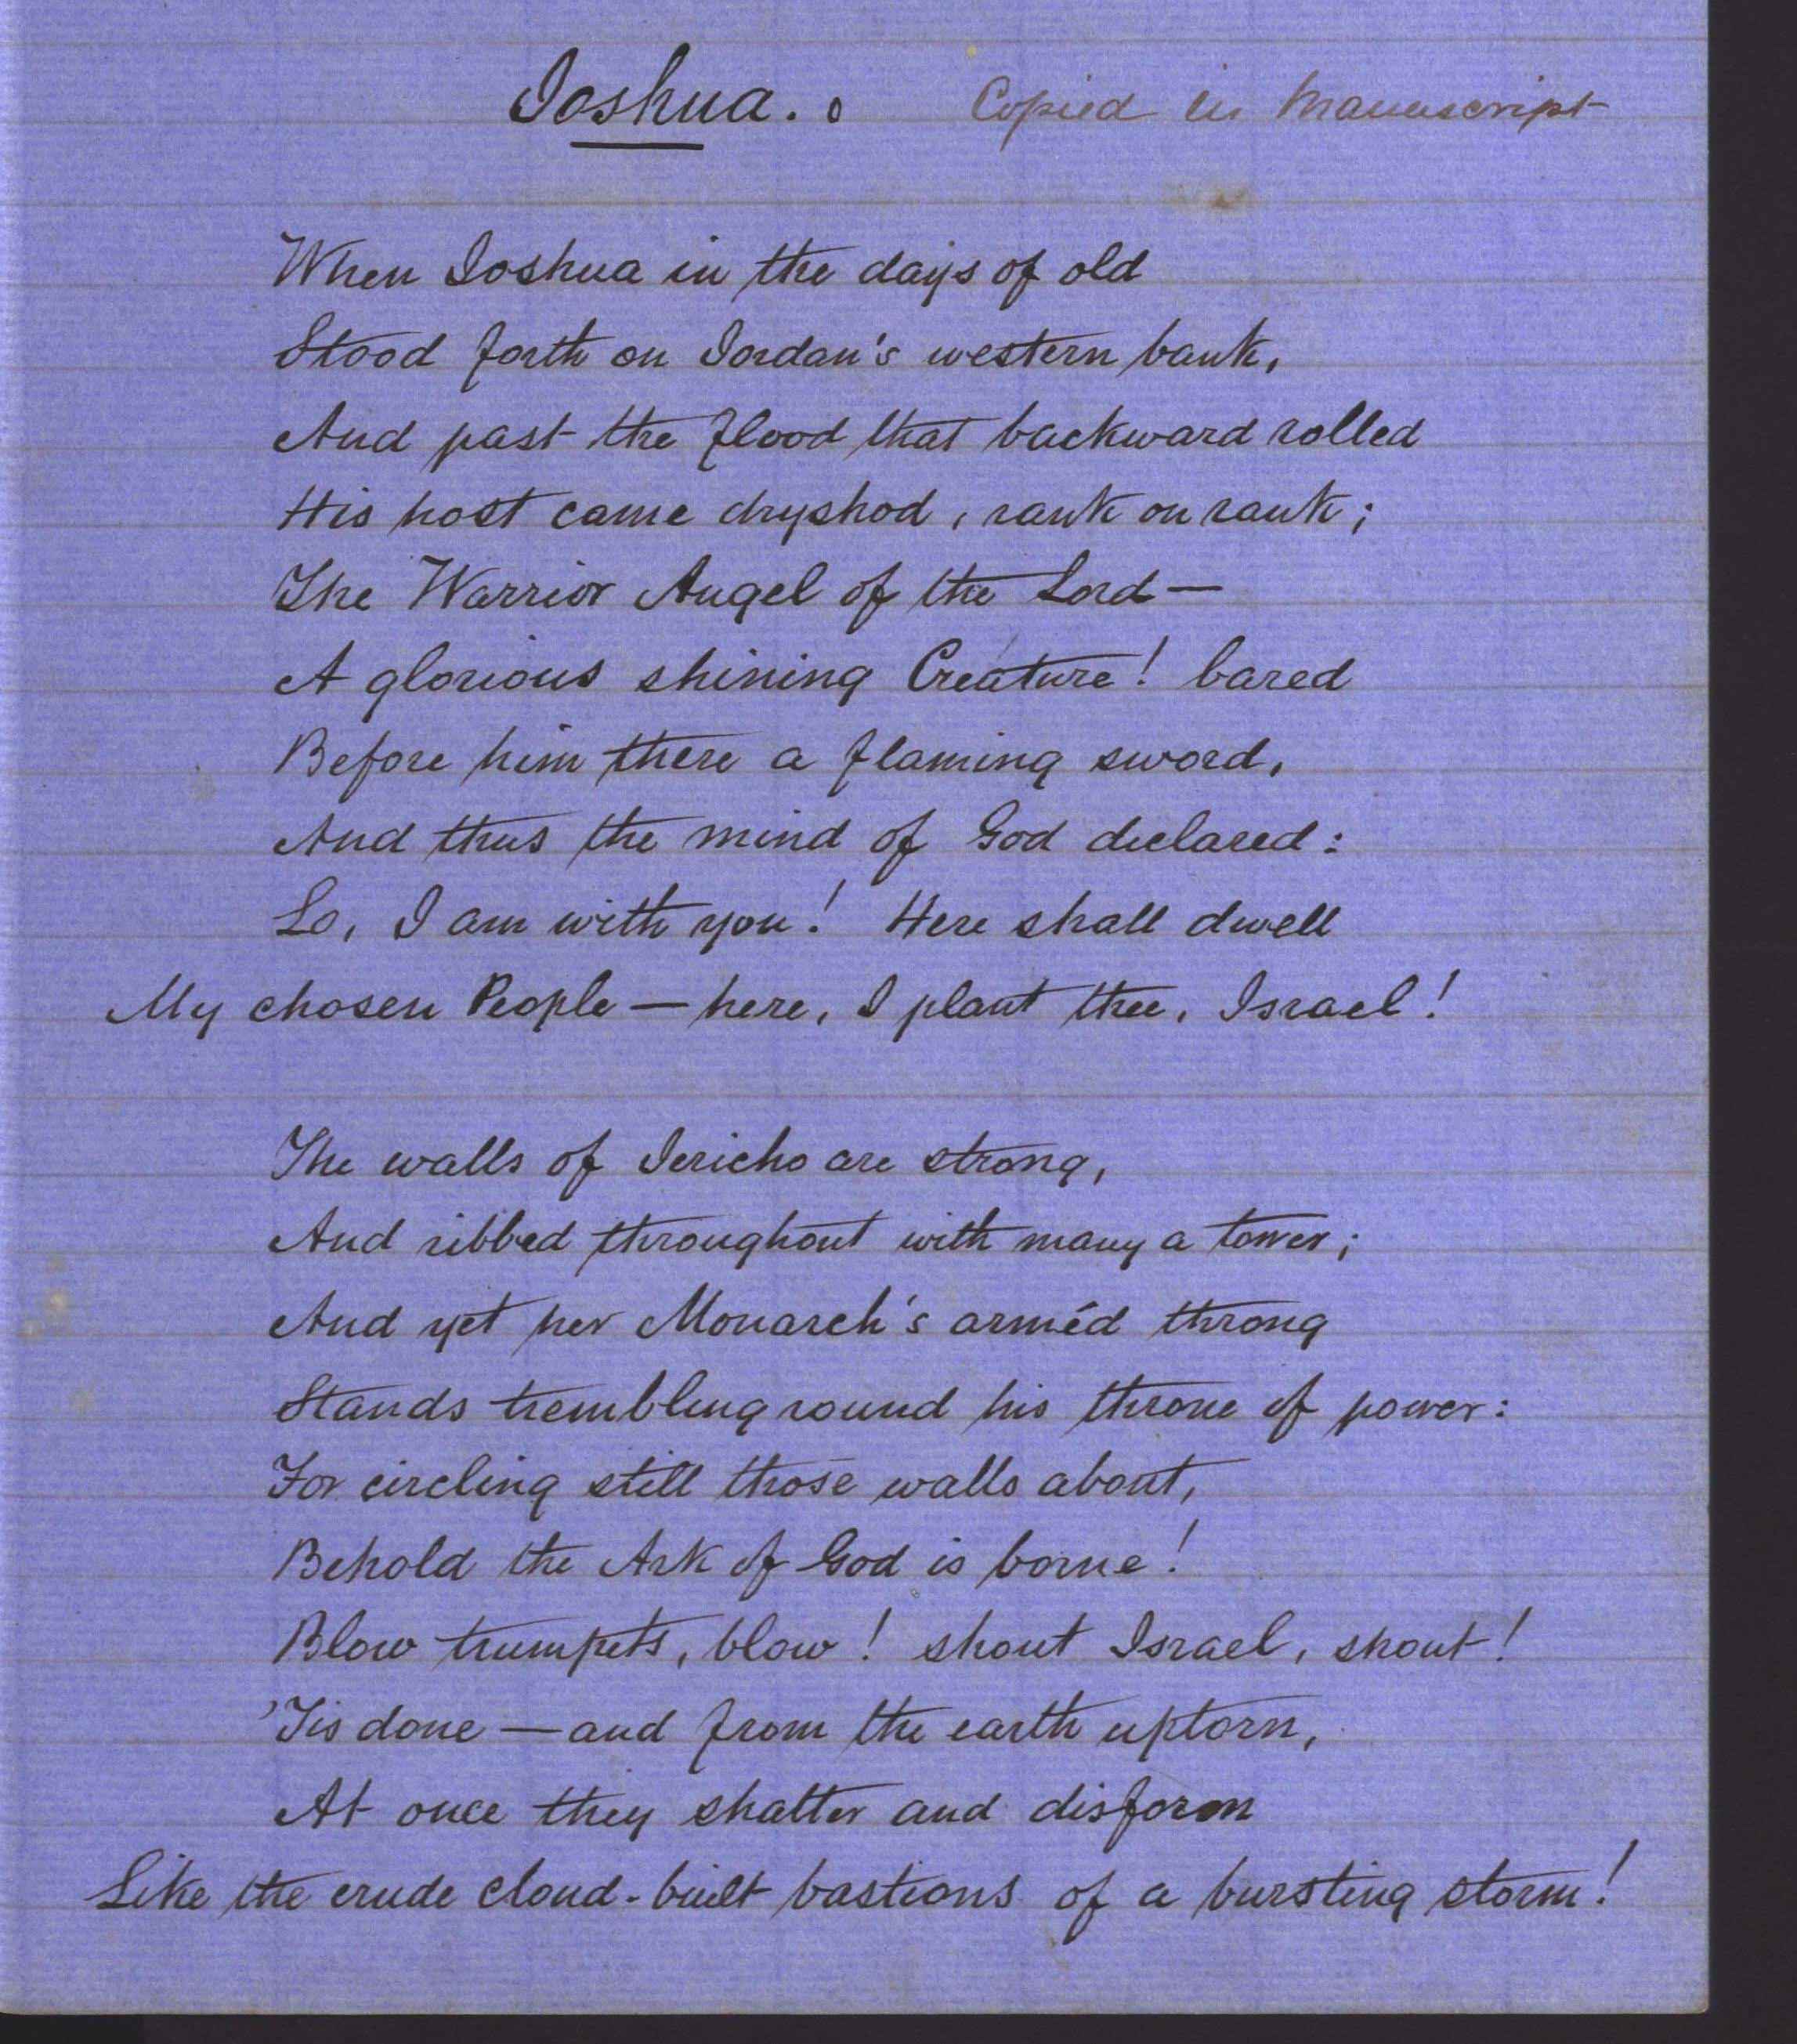 Joshua. o Copied in Manuscript
When Joshua in the days of old
Stood forth on Jordan's western bank,
And past the flood that backward rolled
His host came dryshod, rank on rank;
The Warrior Angel of the Lord—
A glorious shining Creature! bared
Before him there a flaming sword,
And thus the mind of God declared:
Lo, I am with you! Here shall dwell
My chosen People — here, I plant thee, Israel!
The walls of Jericho are strong,
And ribbed throughout with many a tower;
And yet her Monarch's arméd throng
Stands trembling round his throne of power:
For circling still those walls about,
Behold the Ark of God is borne!
Blow trumpets, blow! shout Israel, shout!
'Tis done — and from the earth uptorn,
At once they shatter and disform
Like the crude cloud-built bastions of a bursting storm!